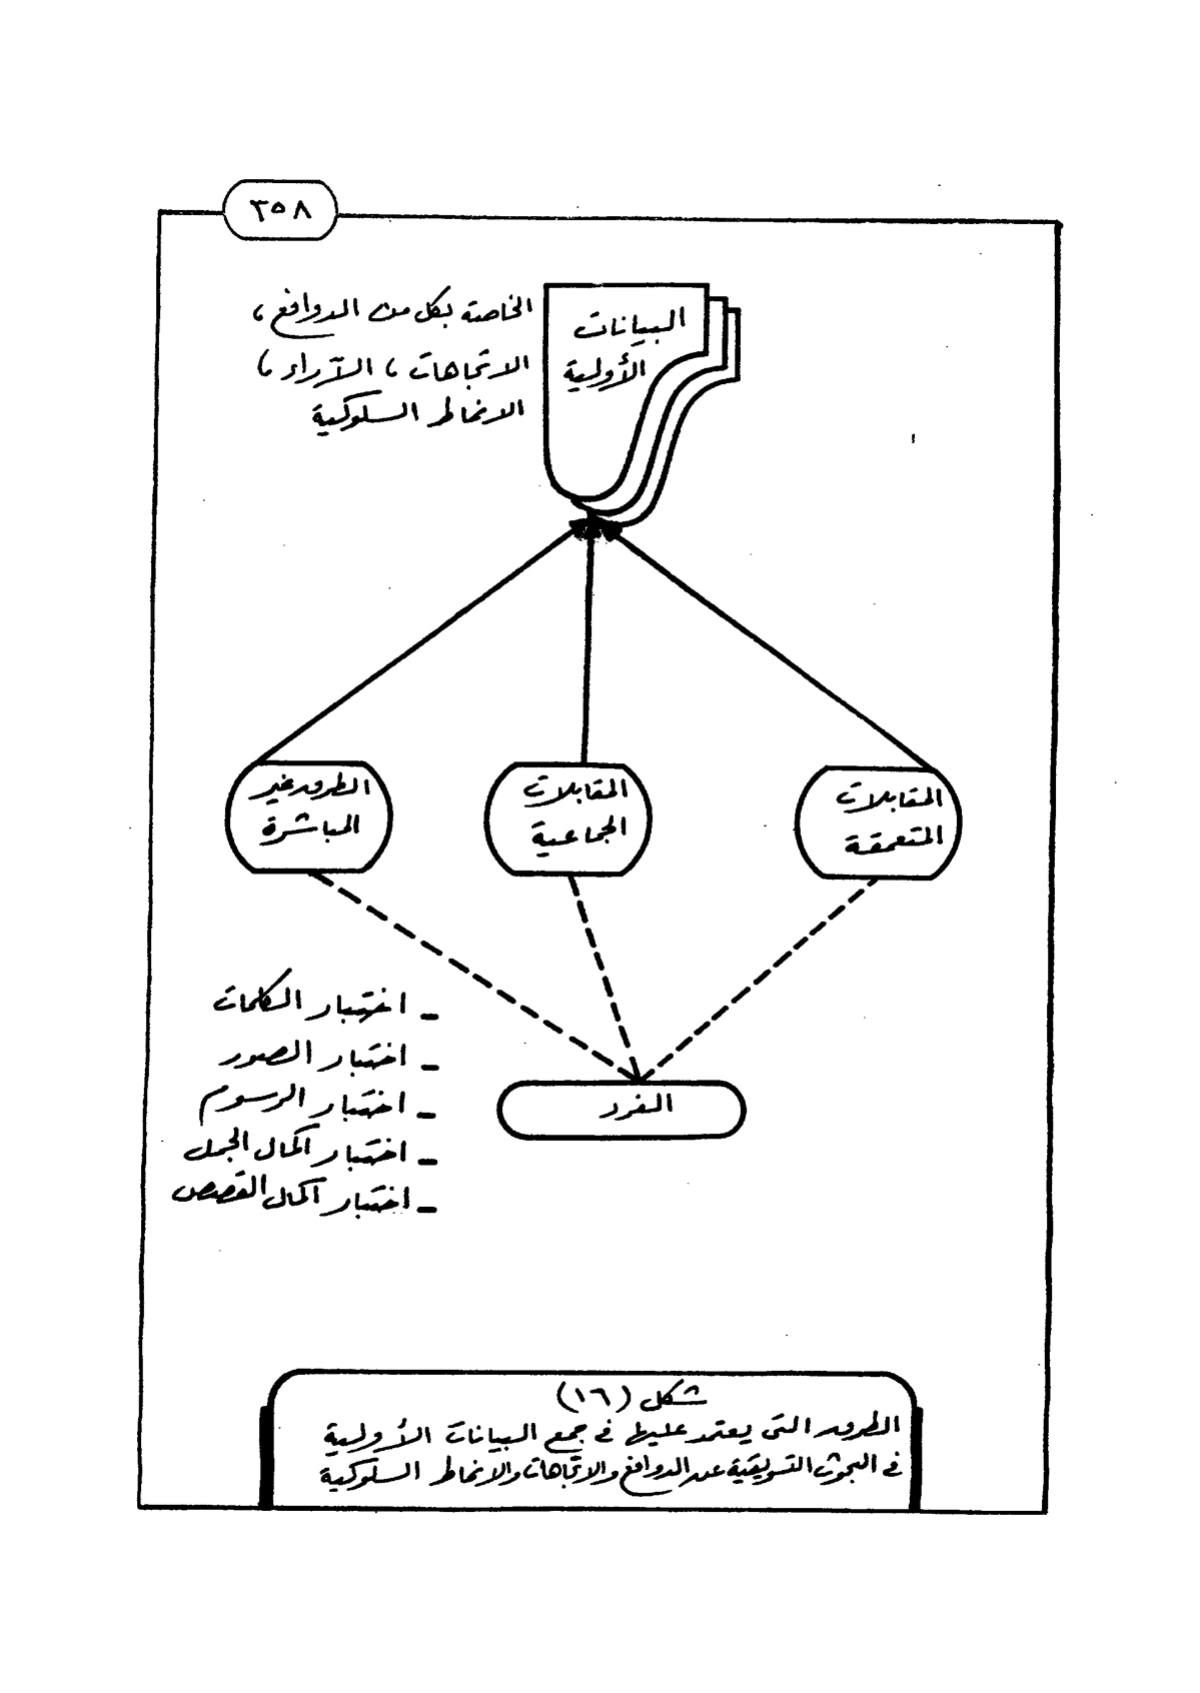 ٣٥٨
البيانات
الأولية
الخاصة بكل من الدوافع ،
الاتجاهات ، الآراء ،
الانماط السلوكية
المقابلات
المتعمقة
المقابلات
الجماعية
الطرق غير
المباشرة
الفرد
- اختبار الكلمات
- اختبار الصور
- اختبار الرسوم
- اختبار اكمال الجمل
- اختبار اكمال القصص
شكل (١٦)
الطرق التى يعتمد عليها فى جمع البيانات الأولية
فى البحوث التسويقية عن الدوافع والاتجاهات والانماط السلوكية